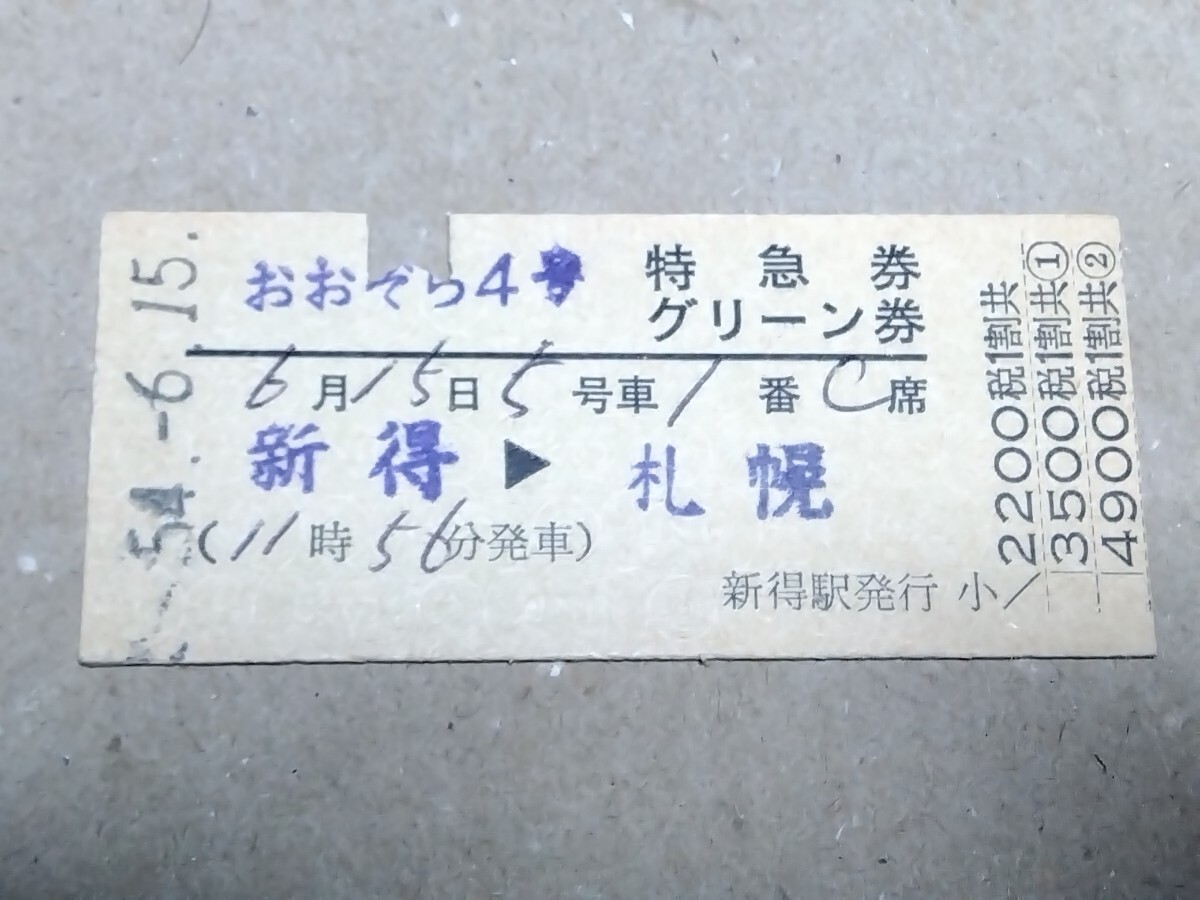 54.-6.15.
おおぞら4号
特急券
グリーン券
6月15日5号車1番C席
新得▶札幌
(11時56分発車)
新得駅発行 小
2200税1割共
3500税1割共①
4900税1割共②